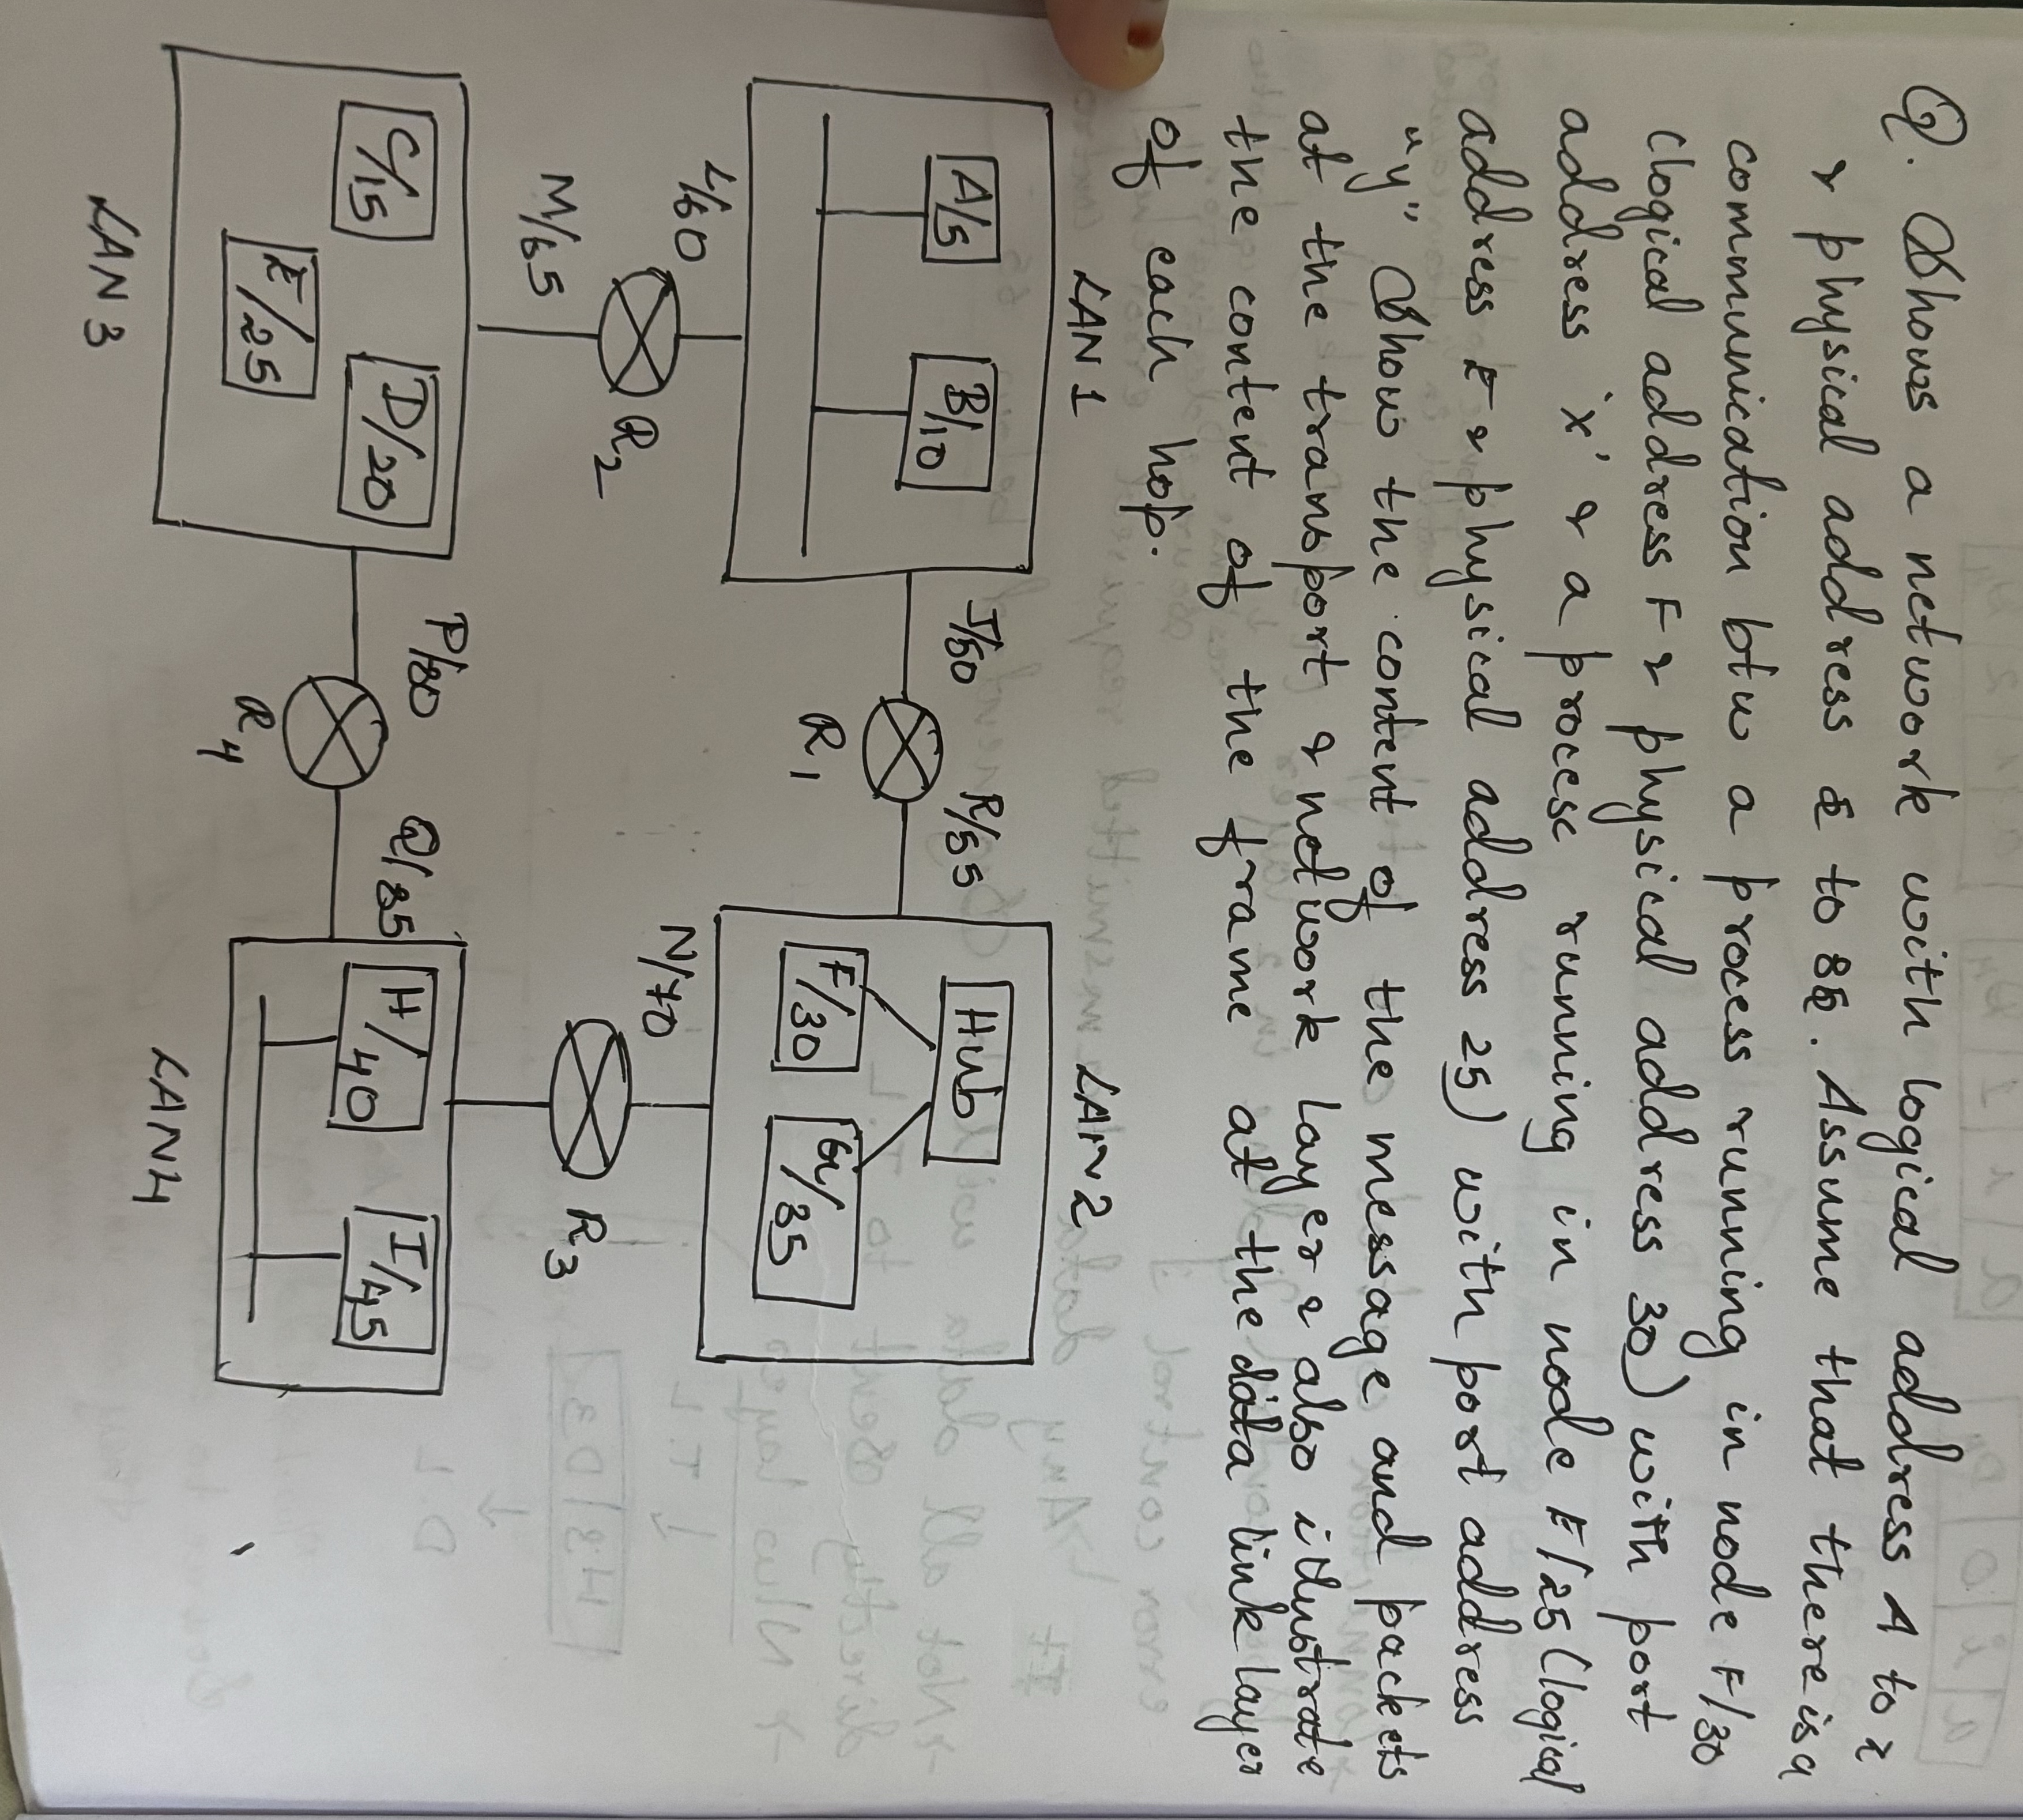 Q. Shows a network with logical address A to z
& physical address 5 to 85. Assume that there is a
communication btw a process running in node F/30
(logical address F & physical address 30) with port
address 'x' & a process running in node E/25 (logical
address E & physical address 25) with port address
"y" Show the content of the message and packets
at the transport & network layer & also illustrate
the content of the frame at the data link layer
of each hop.
LAN 1
LAN 2
A/5
B/10
J/50
R/55
R1
Hub
F/30
G/35
L/60
R2
M/65
N/70
R3
C/15
D/20
E/25
P/80
R4
Q/85
H/40
I/45
LAN 3
LAN4